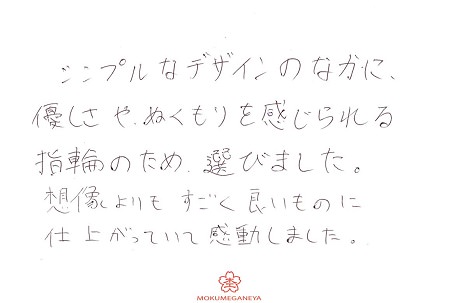 シンプルなデザインのなかに、
優しさや、ぬくもりを感じられる
指輪のため、選びました。
想像よりもすごく良いものに
仕上がっていて感動しました。
MOKUMEGANEYA